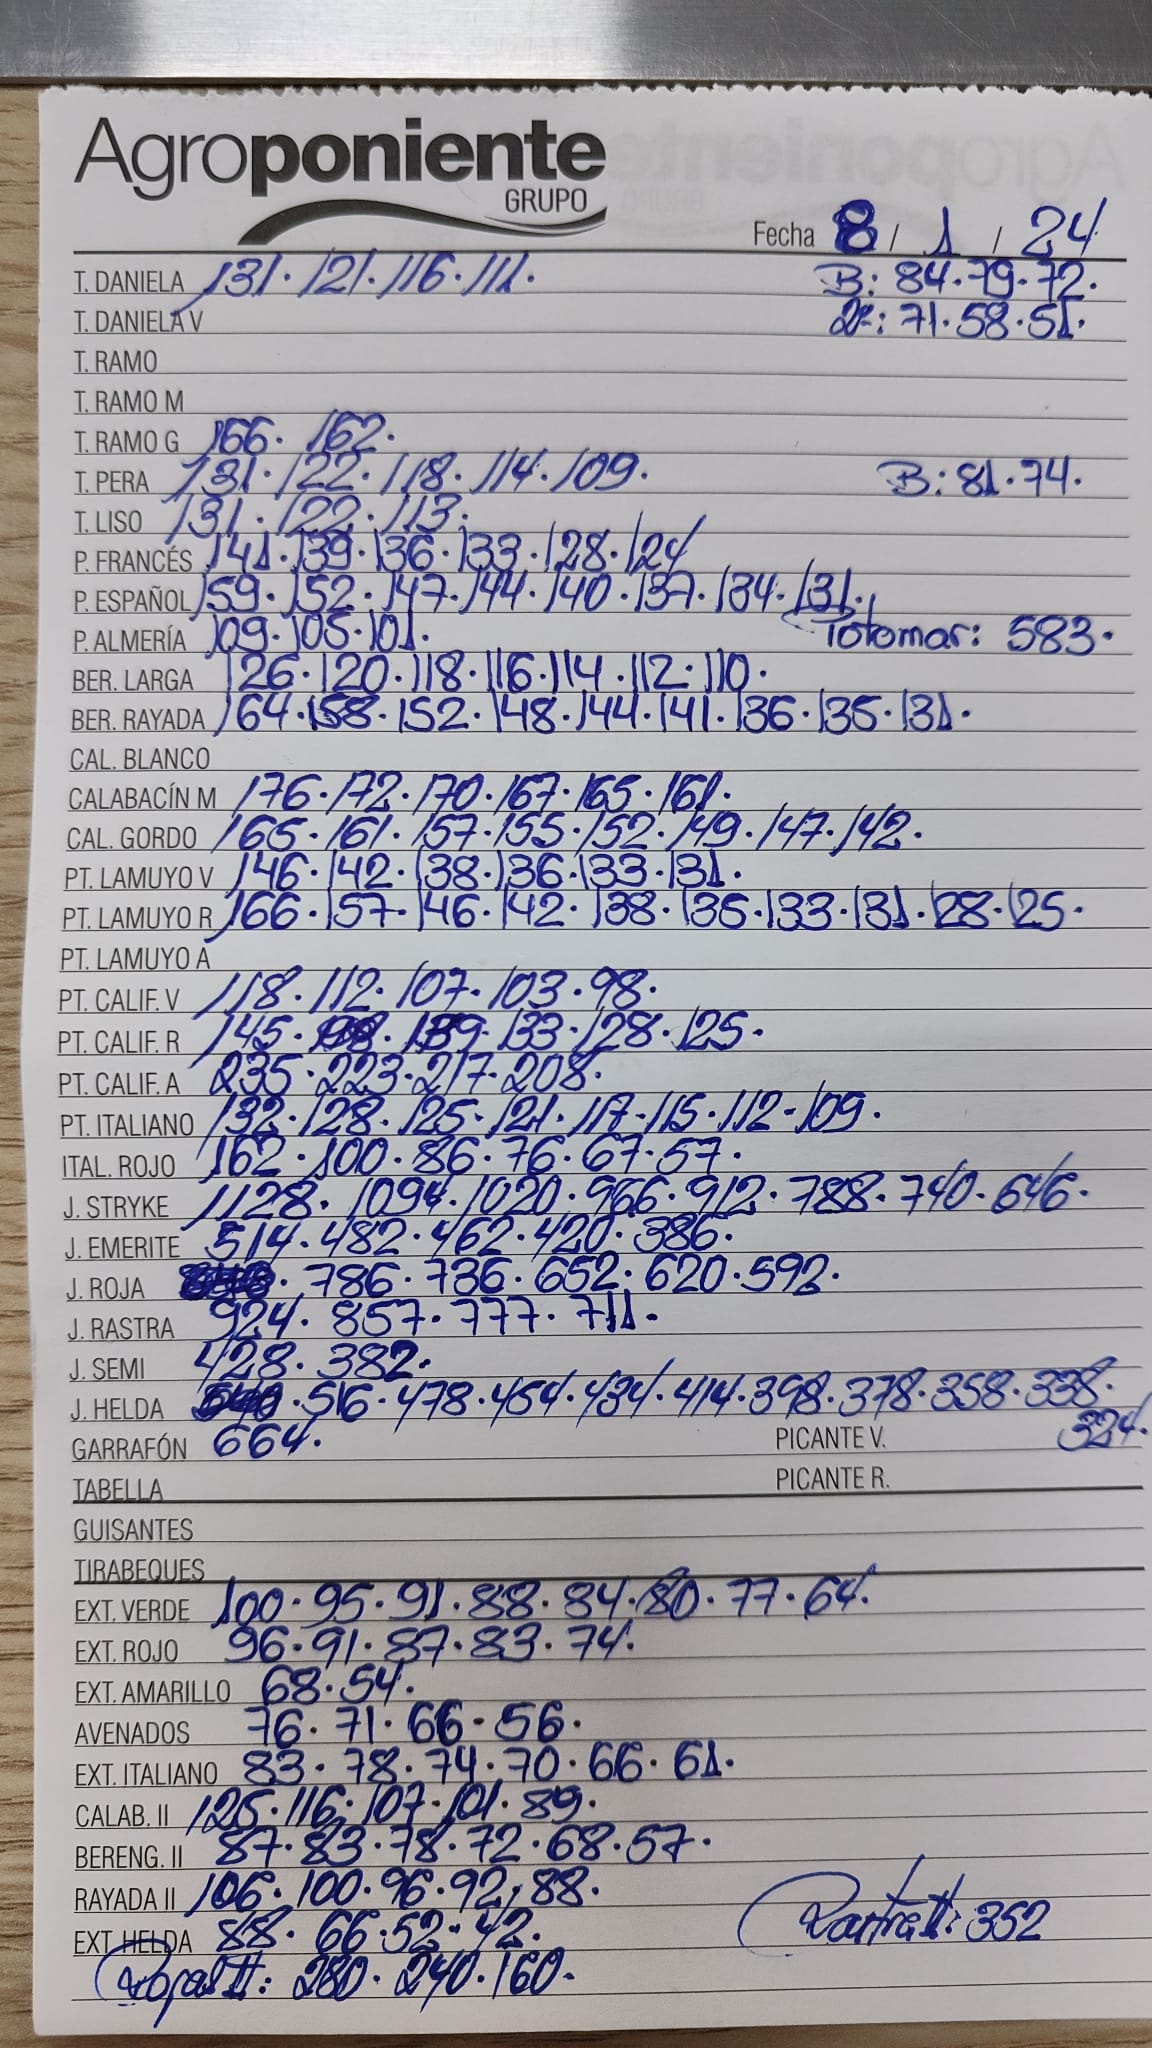 Agroponiente
GRUPO
Fecha 8 / 1 / 24
T. DANIELA 131. 121. 116. 111. B: 84.79.72.
T. DANIELA V 2ª: 71.58.51.
T. RAMO
T. RAMO M
T. RAMO G 166. 162.
T. PERA 131. 122. 118. 114. 109. B: 81.74.
T. LISO 131. 122. 113.
P. FRANCÉS 141. 139. 136. 133. 128. 124
P. ESPAÑOL 159. 152. 147. 144. 140. 137. 134. 131.
P. ALMERÍA 109. 105. 101. Totomar: 583.
BER. LARGA 126. 120. 118. 116. 114. 112. 110.
BER. RAYADA 164. 158. 152. 148. 144. 141. 136. 135. 131.
CAL. BLANCO
CALABACÍN M 176. 172. 170. 167. 165. 161.
CAL. GORDO 165. 161. 157. 155. 152. 149. 147. 142.
PT. LAMUYO V 146. 142. 138. 136. 133. 131.
PT. LAMUYO R 166. 157. 146. 142. 138. 135. 133. 131. 128. 125.
PT. LAMUYO A
PT. CALIF. V 118. 112. 107. 103. 98.
PT. CALIF. R 145. 139. 133. 128. 125.
PT. CALIF. A 235. 223. 217. 208.
PT. ITALIANO 132. 128. 125. 121. 117. 115. 112. 109.
ITAL. ROJO 162. 100. 86. 76. 67. 57.
J. STRYKE 1128. 1094. 1020. 966. 912. 788. 740. 646.
J. EMERITE 514. 482. 462. 420. 386.
J. ROJA 786. 736. 652. 620. 592.
J. RASTRA 924. 857. 777. 711.
J. SEMI 428. 382.
J. HELDA 516. 478. 454. 434. 414. 398. 378. 358. 338.
GARRAFÓN 664. PICANTE V. 324.
TABELLA PICANTE R.
GUISANTES
TIRABEQUES
EXT. VERDE 100. 95. 91. 88. 84. 80. 77. 64.
EXT. ROJO 96. 91. 87. 83. 74.
EXT. AMARILLO 68. 54.
AVENADOS 76. 71. 66. 56.
EXT. ITALIANO 83. 78. 74. 70. 66. 61.
CALAB. II 125. 116. 107. 101. 89.
BERENG. II 87. 83. 78. 72. 68. 57.
RAYADA II 106. 100. 96. 92, 88.
EXT. HELDA 88. 66. 52. 42. Rastra II: 352
Rojas II: 280. 240. 160.